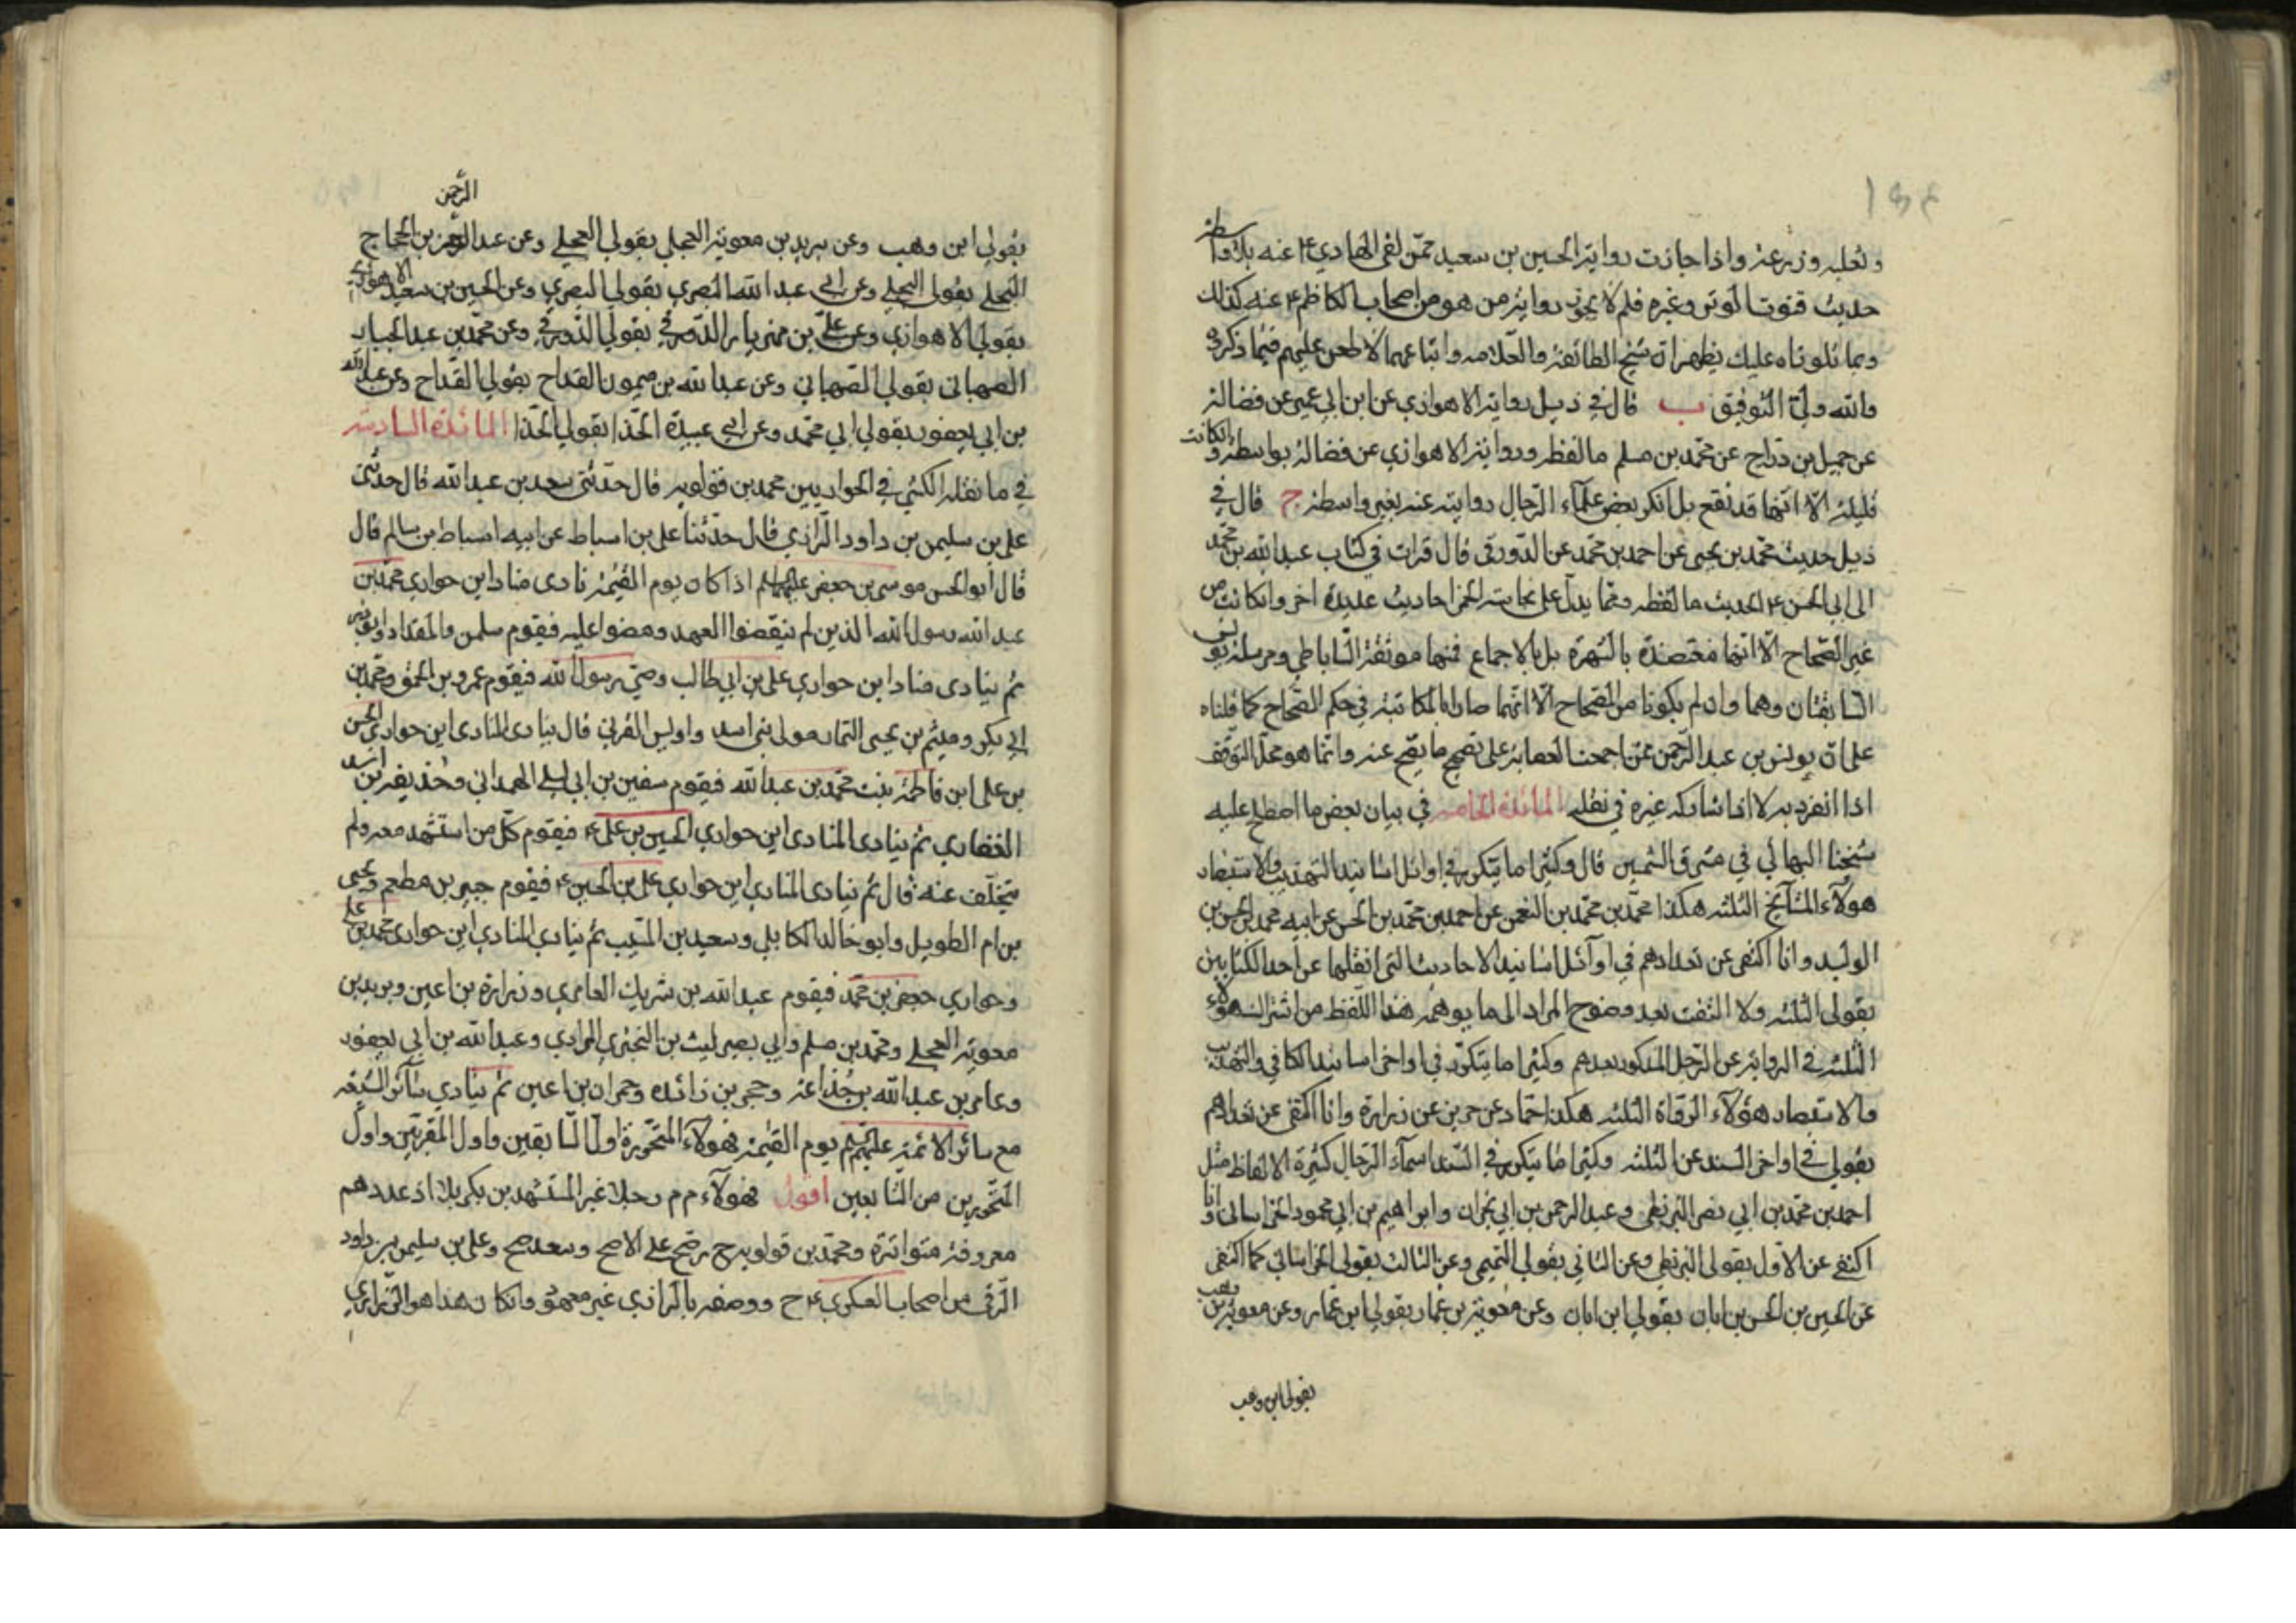 وثعلبه وزرعه واذا جازت رواية الحسين بن سعيد عمن لقى الهادي ع عنه بلا واسطة
حديث قنوت الوتر وغيره فلم لا يجوز رواية من هو من اصحاب الكاظم ع عنه كذلك
وبما تلوناه عليك يظهر ان شيخ الطائفة والعلامه واتباعهما لا طعن عليهم فيما ذكروه
والله ولي التوفيق ب قال في ذيل رواية الاهوازي عن ابن ابي عمير عن فضالة
عن جميل بن دراج عن محمد بن مسلم ما لفظه ورواية الاهوازي عن فضالة بواسطة وان كانت
قليلة الا انها قد تقع بل انكر بعض علماء الرجال روايته عنه بغير واسطة ج قال في
ذيل حديث محمد بن يحيى عن احمد بن محمد عن الدورقي قال قرات في كتاب عبدالله بن محمد
الى ابي الحسن ع الحديث ما لفظه ومما يدل على نجاسة الخمر احاديث عديدة اخر وان كانت من
غير الصحاح الا انها معتضدة بالشهرة بل بالاجماع فمنها موثقة الساباطي ومرسلة يونس
السابقتان وهما وان لم يكونا من الصحاح الا انهما صارا بالمكاتبة في حكم الصحاح كما قلناه
على ان يونس بن عبد الرحمن ممن اجمعت العصابة على تصحيح ما يصح عنه وانما هو محل التوقف
اذا انفرد به لا اذا شاركه غيره في نقله المائدة الخامسه في بيان بعض ما اصطلح عليه
شيخنا البهائي في مشرق الشمسين قال وكثيرا ما يتكرر في اوائل اسانيد التهذيب والاستبصار
هولاء المشايخ الثلثه هكذا محمد بن محمد بن النعمن عن احمد بن محمد بن الحسن عن ابيه محمد بن الحسن بن
الوليد وانا اكتفى عن تعدادهم في اوائل اسانيد الاحاديث التي انقلها عن احد الكتابين
بقولى الثلثه ولا التفت بعد وضوح المراد الى ما يوهمه هذا اللفظ من اشتراك هولاء
الثلثه في الرواية عن الرجل المذكور بعدهم وكثيرا ما يتكرر في اواخر اسانيد الكافي والتهذيب
والاستبصار هؤلاء الرواة الثلثه هكذا حماد عن حريز عن زرارة وانا اكتفى عن تعدادهم
بقولي في اواخر السند عن الثلثه وكثيرا ما يتكرر في السند اسماء الرجال كثيرة الالفاظ مثل
احمد بن محمد بن ابي نصر البزنطي وعبد الرحمن بن ابي نجران وابراهيم بن ابي محمود الخراسانى وانا
اكتفى عن الاول بقولى البزنطي وعن الثاني بقولي التميمي وعن الثالث بقولي الخراساني كما اكتفى
عن الحسين بن الحسن بن ابان بقولي ابن ابان وعن معوية بن عمار بقولي ابن عمار وعن معوية بن وهب
بقولي ابن وهب
الرحمن
بقولي ابن وهب وعن بريد بن معوية العجلي بقولي العجلي وعن عبد الرحمن بن الحجاج
البجلي بقولي البجلي وعن ابي عبدالله البصري بقولي البصري وعن الحسين بن سعيد الاهوازي
بقولي الاهوازي وعن علي بن مهزيار الدورقي بقولي الدورقي وعن محمد بن عبد الجبار
الصهباني بقولي الصهباني وعن عبدالله بن ميمون القداح بقولي القداح وعن عبدالله
بن ابي يعفور بقولي ابي محمد وعن ابي عبيدة الحذا بقولي الحذا المائدة السادسه
في ما نقله الكشي في الحواريين محمد بن قولويه قال حدثني سعد بن عبدالله قال حدثني
علي بن سليمن بن داود الرازي قال حدثنا علي بن اسباط عن ابيه اسباط بن سالم قال
قال ابو الحسن موسى بن جعفر عليهما السلم اذا كان يوم القيمة نادى مناد اين حواري محمد بن
عبدالله رسول الله الذين لم ينقضوا العهد ومضوا عليه فيقوم سلمن والمقداد وابوذر
ثم ينادى مناد اين حواري علي بن ابي طالب وصي رسول الله فيقوم عمرو بن الحمق ومحمد بن
ابي بكر وميثم بن يحيى التمار مولى بني اسد واويس القرني قال ينادى المنادى اين حواري الحسن
بن علي ابن فاطمة بنت محمد بن عبدالله فيقوم سفين بن ابي ليلى الهمداني وحذيفة بن اسيد
الغفاري ثم ينادى المنادى اين حواري الحسين بن علي ع فيقوم كل من استشهد معه ولم
يتخلف عنه قال ثم ينادى المنادي اين حواري علي بن الحسين ع فيقوم جبير بن مطعم ويحيى
بن ام الطويل وابو خالد الكابلي وسعيد بن المسيب ثم ينادي المنادي اين حواري محمد بن علي
وحواري جعفر بن محمد فيقوم عبدالله بن شريك العامري وزرارة بن اعين وبريد بن
معوية العجلي ومحمد بن مسلم وابي بصير ليث بن البختري المرادي وعبدالله بن ابي يعفور
وعامر بن عبدالله بن جذاعه وحجر بن زائده وحمران بن اعين ثم ينادي سائر الشيعه
مع سائر الائمة عليهم السلم يوم القيمة فهولاء المتحورة اول السابقين واول المقربين واول
المتحورين من التابعين اقول فهولاء م م رجلا غير المستشهدين بكربلا اذ عددهم
معروفة متواترة ومحمد بن قولويه ح رضح على الاصح وسعد صح وعلي بن سليمن بن داود
الرقى من اصحاب العسكري ع ح ووصفه بالرازي غير معهود وان كان هذا هو الزراري